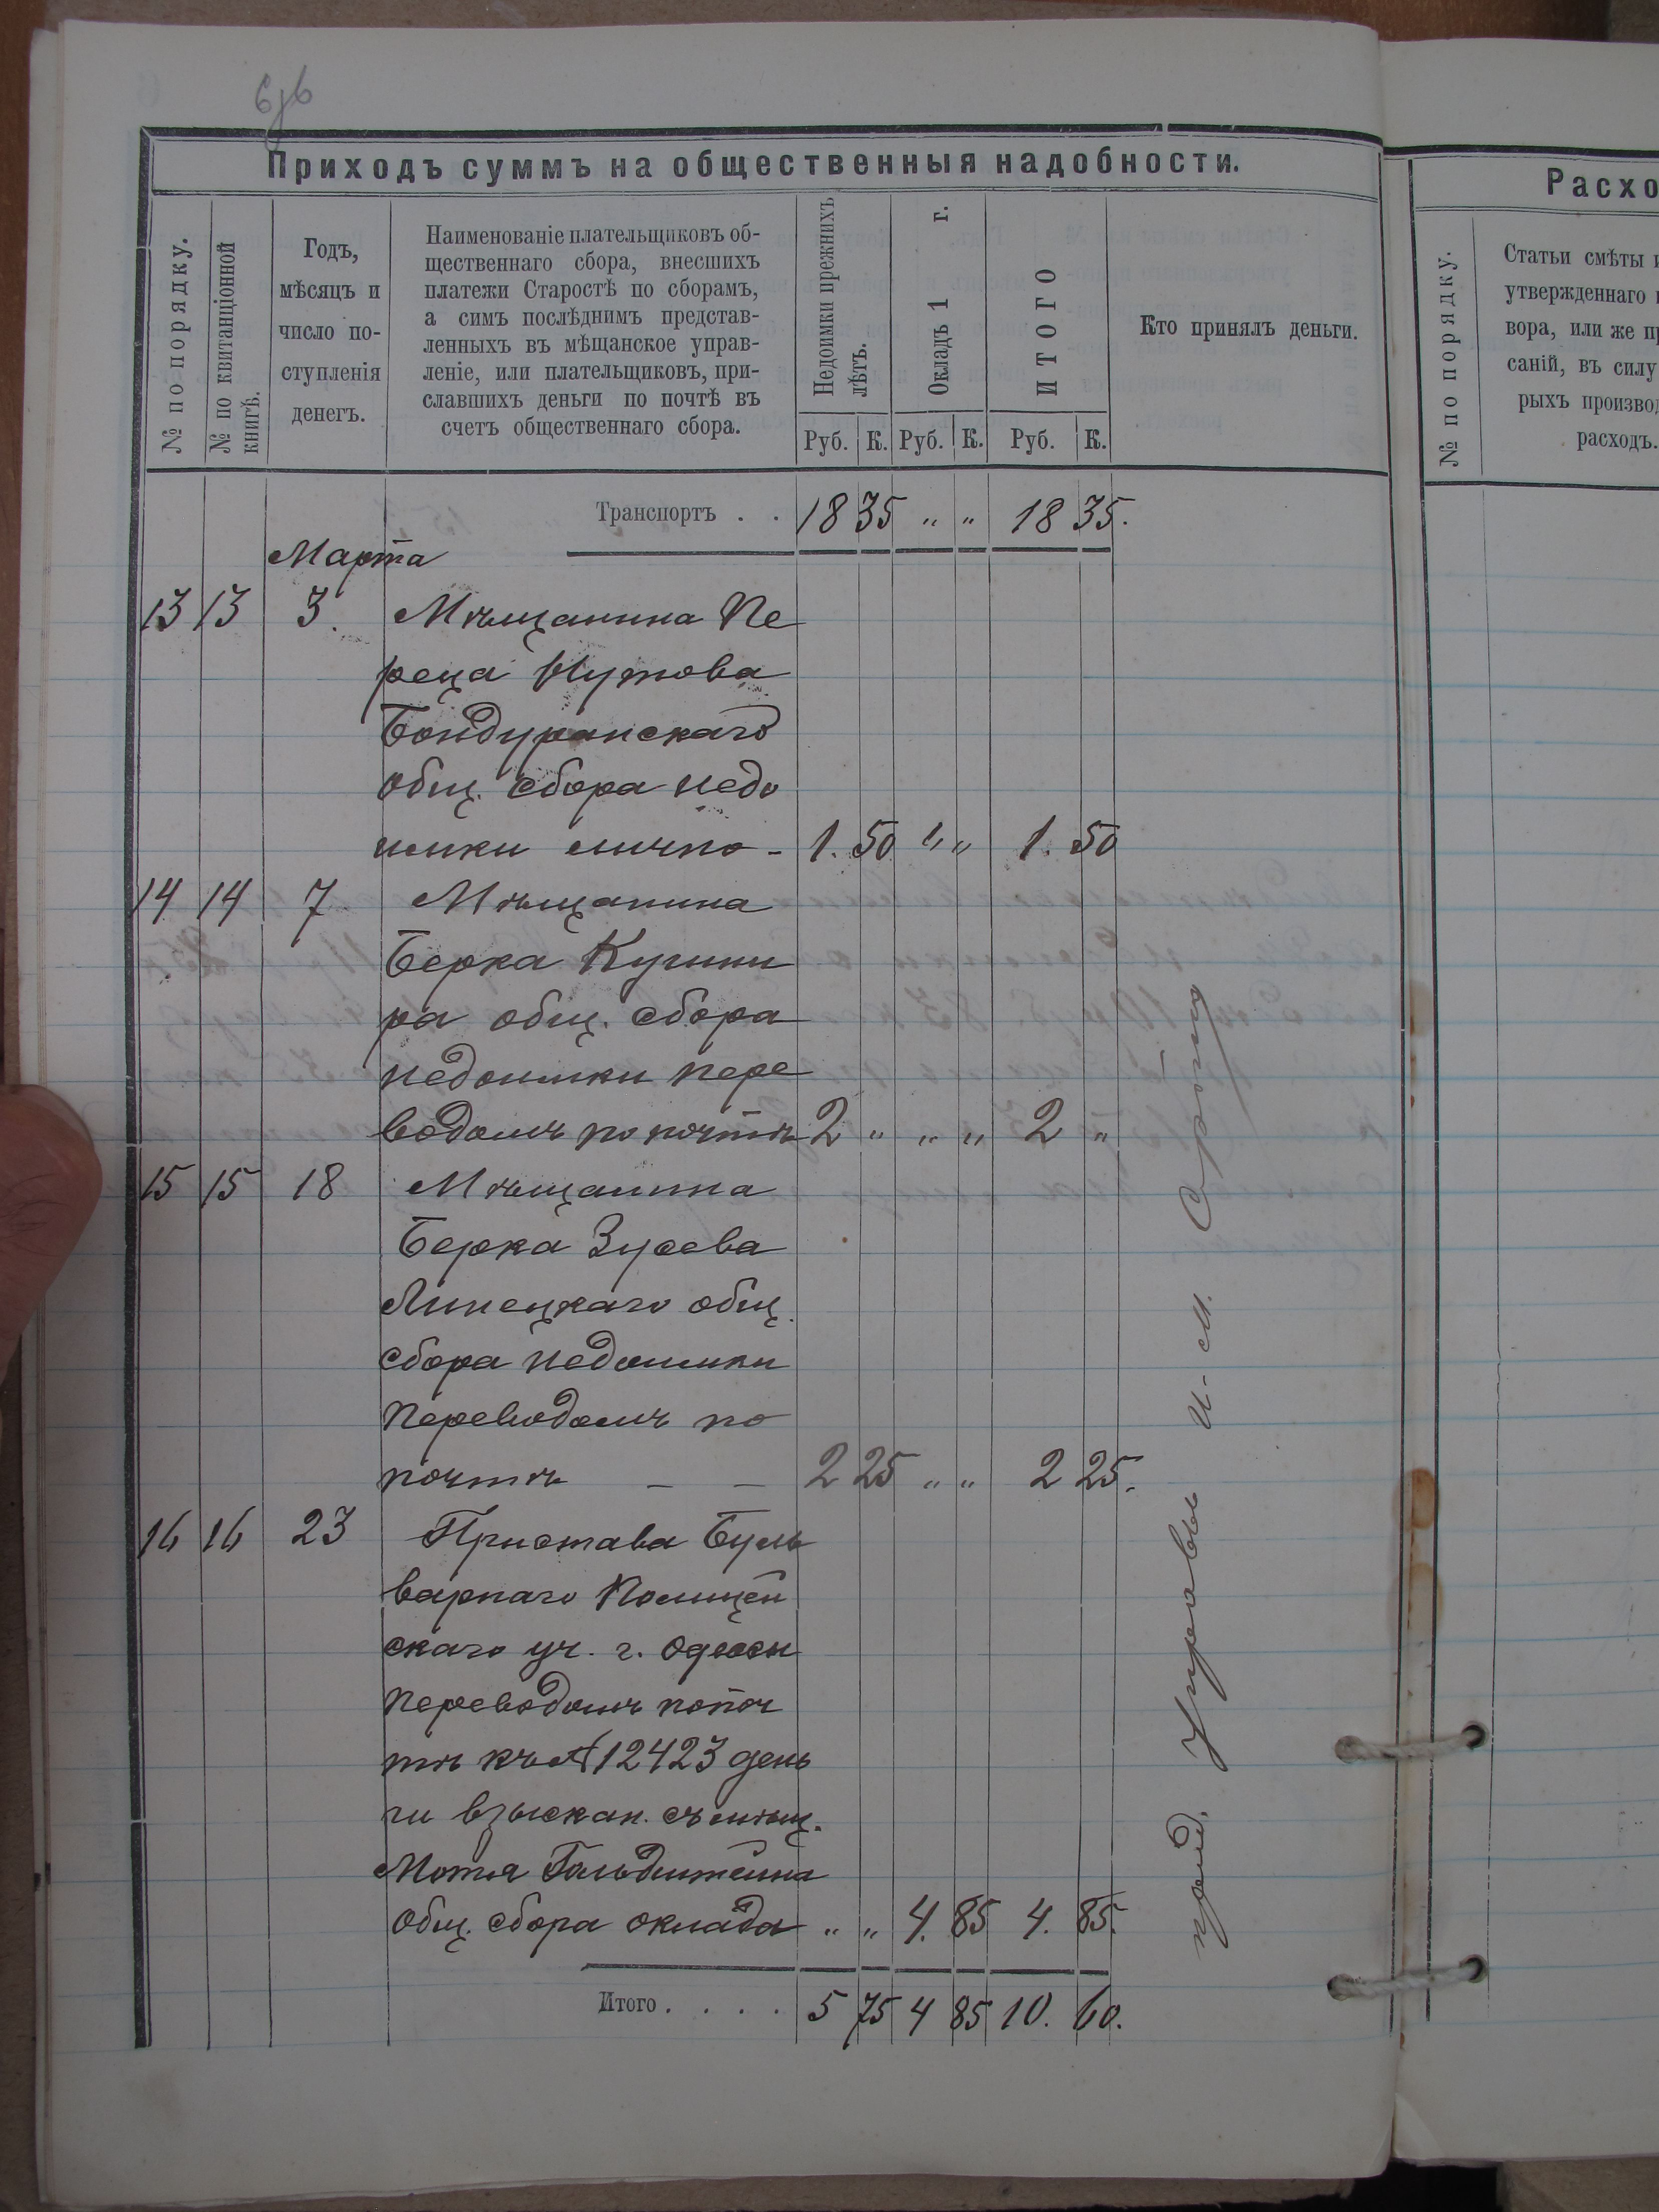 6об
Приходъ суммъ на общественныя надобности.
№ по порядку.
№ по квитанціонной
книгѣ.
Годъ,
мѣсяцъ и
число по-
ступленія
денегъ.
Наименованіе плательщиковъ об-
щественнаго сбора, внесшихъ
платежи Старостѣ по сборамъ,
а симъ послѣднимъ представ-
ленныхъ въ мѣщанское управ-
леніе, или плательщиковъ, при-
славшихъ деньги по почтѣ въ
счетъ общественнаго сбора.
Недоимки прежнихъ
лѣтъ.
Окладъ 1 г.
ИТОГО
Кто принялъ деньги.
Руб. К. Руб. К. Руб. К.
Транспортъ . . 18 35 „ „ 18 35.
Марта
13 13 3. Мѣщанина Пе
реца Нутова
Бондуранскаго
общ. сбора недо
имки лично - 1. 50 „ „ 1. 50
14 14 7 Мѣщанина
Берка Кушни
ра общ. сбора
недоимки пере
водомъ по почтѣ 2 „ „ „ 2 „
15 15 18 Мѣщанина
Берка Зусева
Липецкаго общ.
сбора недоимки
переводомъ по
почтѣ — — 2 25 „ „ 2 25.
16 16 23 Пристава Буль
варнаго Полицей
скаго уч. г. Одессы
переводомъ по поч
тѣ къ № 12423 день
ги взыскан. съ мѣщ.
Мотя Гольдштейна
общ. сбора оклада „ „ 4. 85 4. 85.
Итого . . . . 5 75 4 85 10. 60.
Управы И. М.
Расхо
№ по порядку.
Статьи смѣты и
утвержденнаго
вора, или же пр
саній, въ силу
рыхъ производ
расходъ.